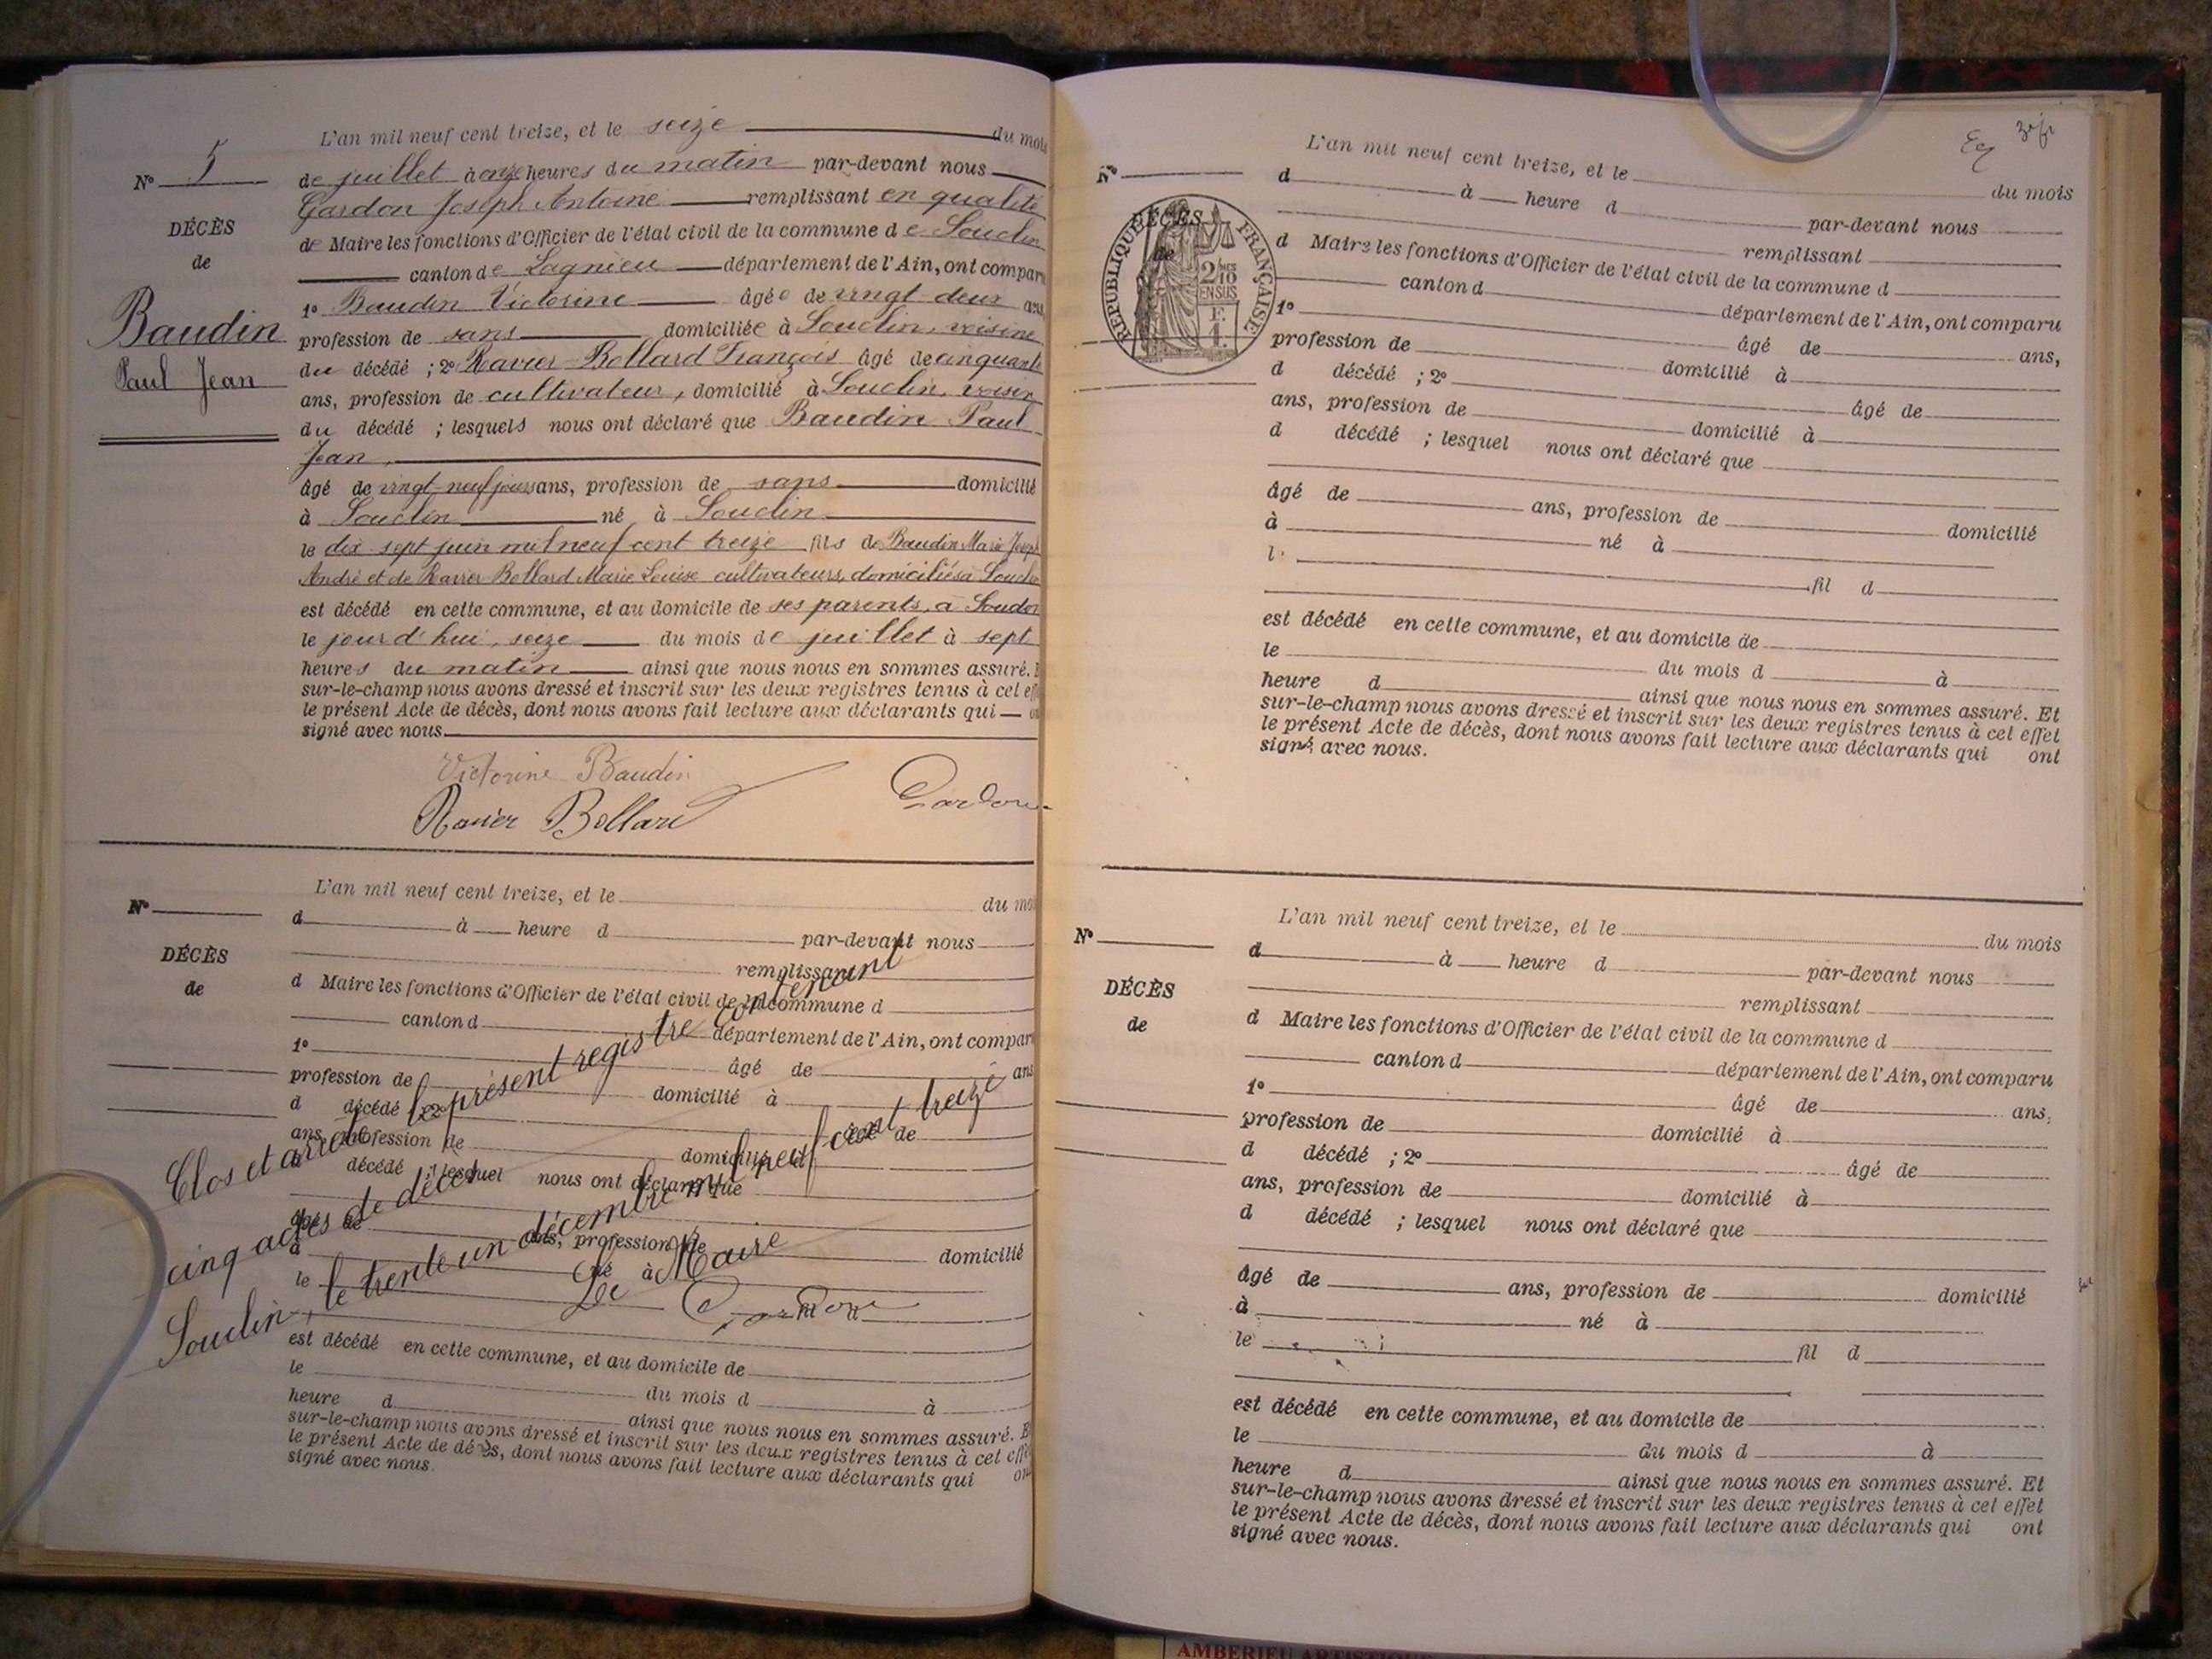 L'an mil neuf cent treize, et le seize du mois
N° 5 de juillet à onze heures du matin par-devant nous
Gardon Joseph Antoine remplissant en qualité
DÉCÈS
de Maire les fonctions d'Officier de l'état civil de la commune de Souclin
de
canton de Lagnieu département de l'Ain, ont comparu
1° Baudin Victorine âgée de vingt-deux ans,
Baudin
profession de sans domiciliée à Souclin, voisine
Paul Jean
du décédé ; 2° Ravier-Bollard François âgé de cinquante
ans, profession de cultivateur, domicilié à Souclin, voisin
du décédé ; lesquels nous ont déclaré que Baudin Paul
Jean,
âgé de vingt-neuf jours ans, profession de sans domicilié
à Souclin né à Souclin
le dix sept juin mil neuf cent treize fils de Baudin Marie Joseph
André et de Ravier-Bollard Marie Louise cultivateurs, domiciliés à Souclin
est décédé en cette commune, et au domicile de ses parents, à Souclin
le jour d'hui, seize du mois de juillet à sept
heures du matin ainsi que nous nous en sommes assuré. E
sur-le-champ nous avons dressé et inscrit sur les deux registres tenus à cet eff
le présent Acte de décès, dont nous avons fait lecture aux déclarants qui on
signé avec nous.
Victorine Baudin
Ravier Bollard
Gardon
L'an mil neuf cent treize, et le du moi
N° d à heure d par-devant nous
remplissant
DÉCÈS
d Maire les fonctions d'Officier de l'état civil de la commune d
de
canton d département de l'Ain, ont compar
1° âgé de ans
profession de domicilié à
d décédé ; 2° âgé de
ans, profession de domicilié à
d décédé ; lesquel nous ont déclaré que
âgé de ans, profession de domicilié
à né à
le fil d
est décédé en cette commune, et au domicile de
le du mois d à
heure d ainsi que nous nous en sommes assuré. E
sur-le-champ nous avons dressé et inscrit sur les deux registres tenus à cet effe
le présent Acte de décès, dont nous avons fait lecture aux déclarants qui on
signé avec nous.
Clos et arrêté le présent registre contenant
cinq actes de décès
Souclin, le trente un décembre mil neuf cent treize
Le Maire
Gardon
L'an mil neuf cent treize, et le du mois
N° d à heure d par-devant nous
remplissant
DÉCÈS
d Maire les fonctions d'Officier de l'état civil de la commune d
de
RÉPUBLIQUE FRANÇAISE
2/10 EN SUS
F. 1.
canton d département de l'Ain, ont comparu
1° âgé de ans,
profession de domicilié à
d décédé ; 2° âgé de
ans, profession de domicilié à
d décédé ; lesquel nous ont déclaré que
âgé de ans, profession de domicilié
à né à
l fil d
est décédé en cette commune, et au domicile de
le du mois d à
heure d ainsi que nous nous en sommes assuré. Et
sur-le-champ nous avons dressé et inscrit sur les deux registres tenus à cet effet
le présent Acte de décès, dont nous avons fait lecture aux déclarants qui ont
signé avec nous.
L'an mil neuf cent treize, et le du mois
N° d à heure d par-devant nous
remplissant
DÉCÈS
d Maire les fonctions d'Officier de l'état civil de la commune d
de
canton d département de l'Ain, ont comparu
1° âgé de ans,
profession de domicilié à
d décédé ; 2° âgé de
ans, profession de domicilié à
d décédé ; lesquel nous ont déclaré que
âgé de ans, profession de domicilié
à né à
le fil d
est décédé en cette commune, et au domicile de
le du mois d à
heure d ainsi que nous nous en sommes assuré. Et
sur-le-champ nous avons dressé et inscrit sur les deux registres tenus à cet effet
le présent Acte de décès, dont nous avons fait lecture aux déclarants qui ont
signé avec nous.
AMBERIEU